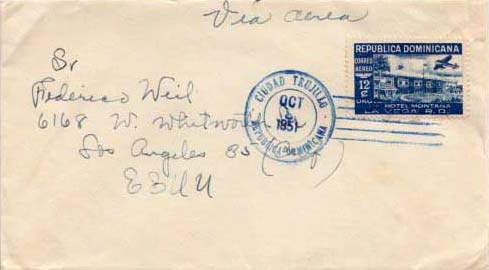 Via aerea
REPUBLICA DOMINICANA
CORREO
AEREO
12
¢
ORO
HOTEL MONTAÑA
LA VEGA R.D.
CIUDAD TRUJILLO
OCT
1951
REPUBLICA DOMINICANA
Sr
Federico Weil
6168 W. Whitworth
Los Angeles 35
EEUU